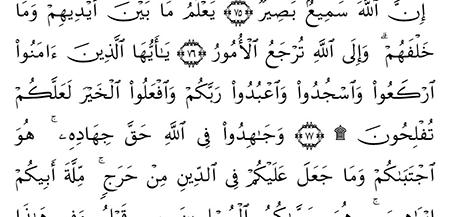 إِنَّ ٱللَّهَ سَمِيعٌۢ بَصِيرٌ ۝٧٥ يَعْلَمُ مَا بَيْنَ أَيْدِيهِمْ وَمَا
خَلْفَهُمْ ۗ وَإِلَى ٱللَّهِ تُرْجَعُ ٱلْأُمُورُ ۝٧٦ يَـٰٓأَيُّهَا ٱلَّذِينَ ءَامَنُوا۟
ٱرْكَعُوا۟ وَٱسْجُدُوا۟ وَٱعْبُدُوا۟ رَبَّكُمْ وَٱفْعَلُوا۟ ٱلْخَيْرَ لَعَلَّكُمْ
تُفْلِحُونَ ۩ ۝٧٧ وَجَـٰهِدُوا۟ فِى ٱللَّهِ حَقَّ جِهَادِهِۦ ۚ هُوَ
ٱجْتَبَىٰكُمْ وَمَا جَعَلَ عَلَيْكُمْ فِى ٱلدِّينِ مِنْ حَرَجٍ ۚ مِّلَّةَ أَبِيكُمْ